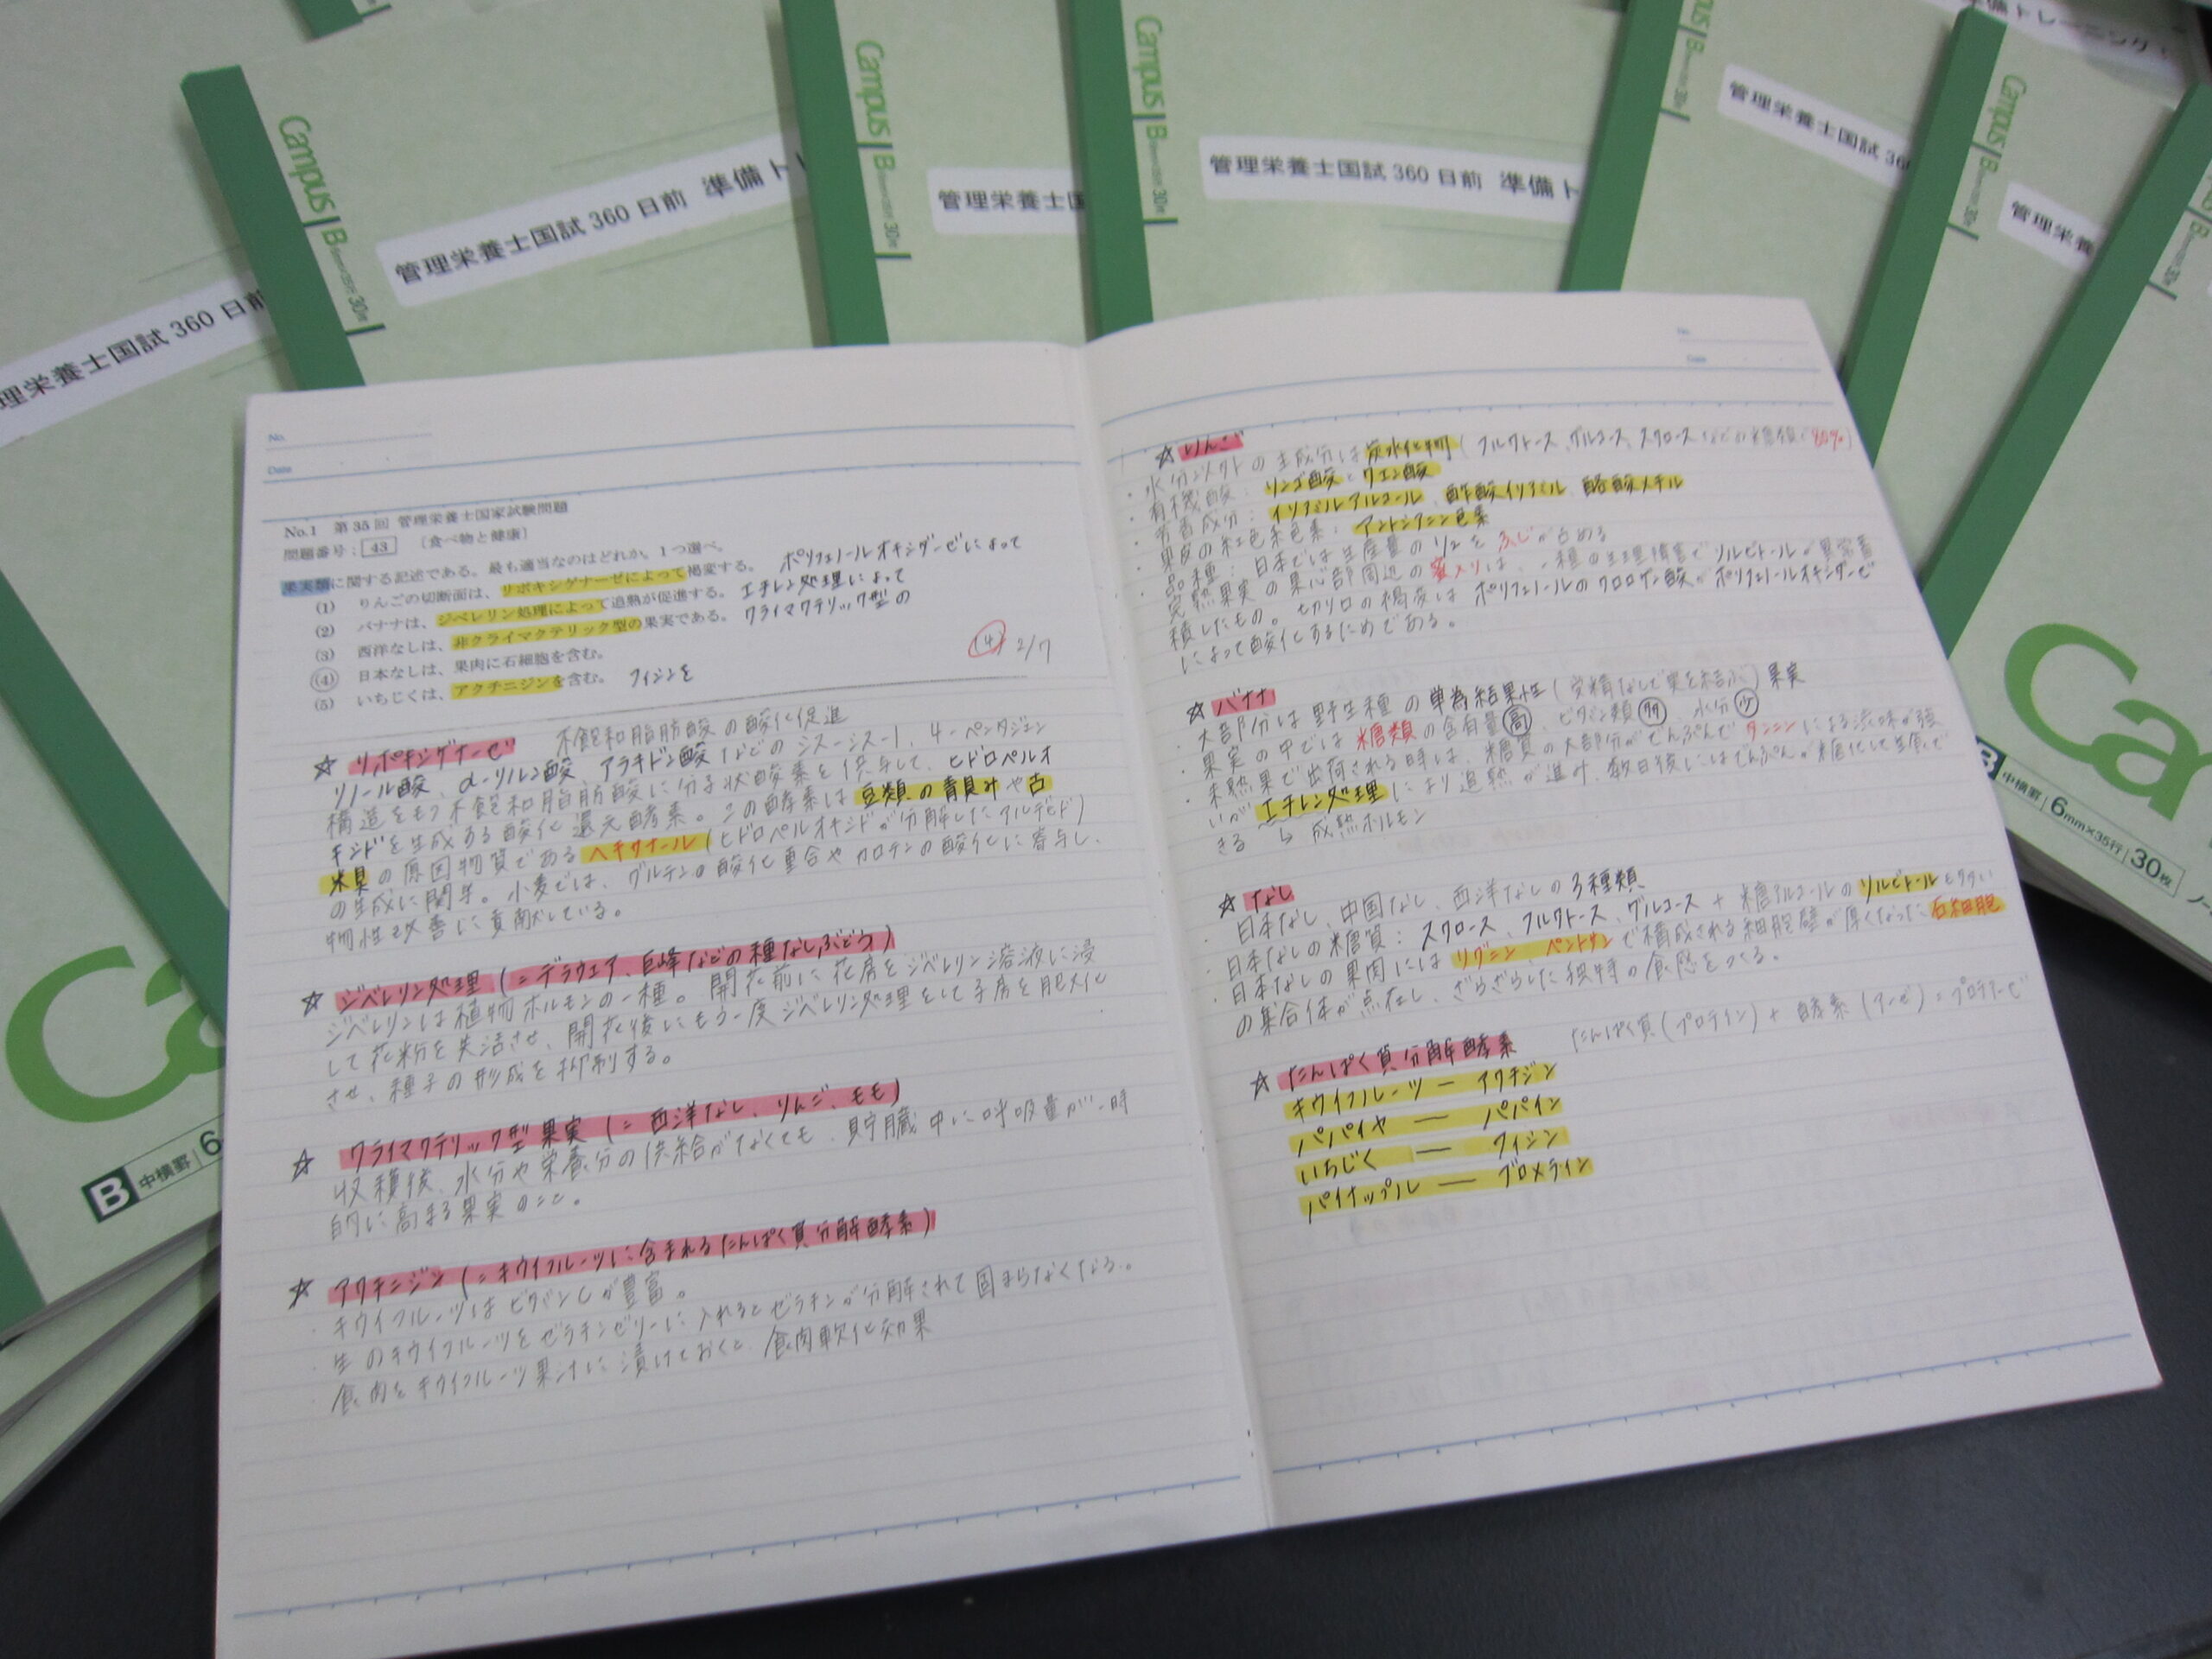 Campus
B 30枚
管理栄養士国試360日前
管理栄養士国試360日前 準備ト
Campus
B 30枚
管理栄養士国
Campus
B 30枚
管理栄養士国試360日前 準備ト
管理栄養士国試36
備トレーニング
Campus
管理栄養
No.
Date
No.1 第35回 管理栄養士国家試験問題
問題番号：43 〔食べ物と健康〕
果実類に関する記述である。最も適当なのはどれか。1つ選べ。
(1) りんごの切断面は、リポキシゲナーゼによって褐変する。 ポリフェノールオキシダーゼによって
(2) バナナは、ジベレリン処理によって追熟が促進する。 エチレン処理によって
(3) 西洋なしは、非クライマクテリック型の果実である。 クライマクテリック型の
(4) 日本なしは、果肉に石細胞を含む。
(5) いちじくは、アクチニジンを含む。 フィシンを
(4) 2/7
☆ リポキシゲナーゼ 不飽和脂肪酸の酸化促進
リノール酸、α-リノレン酸、アラキドン酸などのシス-シス-1、4-ペンタジエン
構造をもつ不飽和脂肪酸に分子状酸素を供与して、ヒドロペルオ
キシドを生成する酸化還元酵素。この酵素は豆類の青臭みや古
米臭の原因物質であるヘキサナール(ヒドロペルオキシドが分解したアルデヒド)
の生成に関与。小麦では、グルテンの酸化重合やカロテンの酸化に寄与し、
物性改善に貢献している。
☆ ジベレリン処理(=デラウエア、巨峰などの種なしぶどう)
ジベレリンは植物ホルモンの一種。開花前に花房をジベレリン溶液に浸
して花粉を失活させ、開花後にもう一度ジベレリン処理をして子房を肥大化
させ、種子の形成を抑制する。
☆ クライマクテリック型果実(=西洋なし、りんご、モモ)
収穫後、水分や栄養分の供給がなくても、貯蔵中に呼吸量が一時
的に高まる果実のこと。
☆ アクチニジン(=キウイフルーツに含まれるたんぱく質分解酵素)
・キウイフルーツはビタミンCが豊富。
・生のキウイフルーツをゼラチンゼリーに入れるとゼラチンが分解されて固まらなくなる。
・食肉をキウイフルーツ果汁に漬けておくと、食肉軟化効果
No.
Date
☆ りんご
・水分以外の主成分は炭水化物(フルクトース、グルコース、スクロース
・有機酸：リンゴ酸とクエン酸
・芳香成分：イソアミルアルコール、酢酸イソアミル、酪酸メチル
・果皮の紅色系色素：アントシアニン色素
・品種：日本では生産量の1/2をふじが占める
・完熟果実の果心部周辺の蜜入りは、一種の生理障害でソルビトールが異常蓄
積したもの。切り口の褐変はポリフェノールのクロロゲン酸がポリフェノールオキシダーゼ
によって酸化するためである。
☆ バナナ
・大部分は野生種の単為結果性(受精なしで実を結ぶ)果実
・果実の中では糖類の含有量高、ビタミン類多、水分少
・未熟果で出荷される時は、糖質の大部分がでんぷんでタンニンによる渋味が強
いがエチレン処理により追熟が進み、数日後にはでんぷんが糖化して生食で
きる ↳ 成熟ホルモン
☆ なし
・日本なし、中国なし、西洋なしの3種類
・日本なしの糖質：スクロース、フルクトース、グルコース+糖アルコールのソルビトールも多い
・日本なしの果肉にはリグニン、ペントザンで構成される細胞壁が厚くなった石細胞
の集合体が点在し、ざらざらした独特の食感をつくる。
☆ たんぱく質分解酵素 たんぱく質(プロテイン)+酵素(アーゼ)=プロテアーゼ
キウイフルーツ ― アクチジン
パパイヤ ― パパイン
いちじく ― フィシン
パイナップル ― ブロメライン
B 中横罫 6
B 中横罫 6mm×35行 30枚